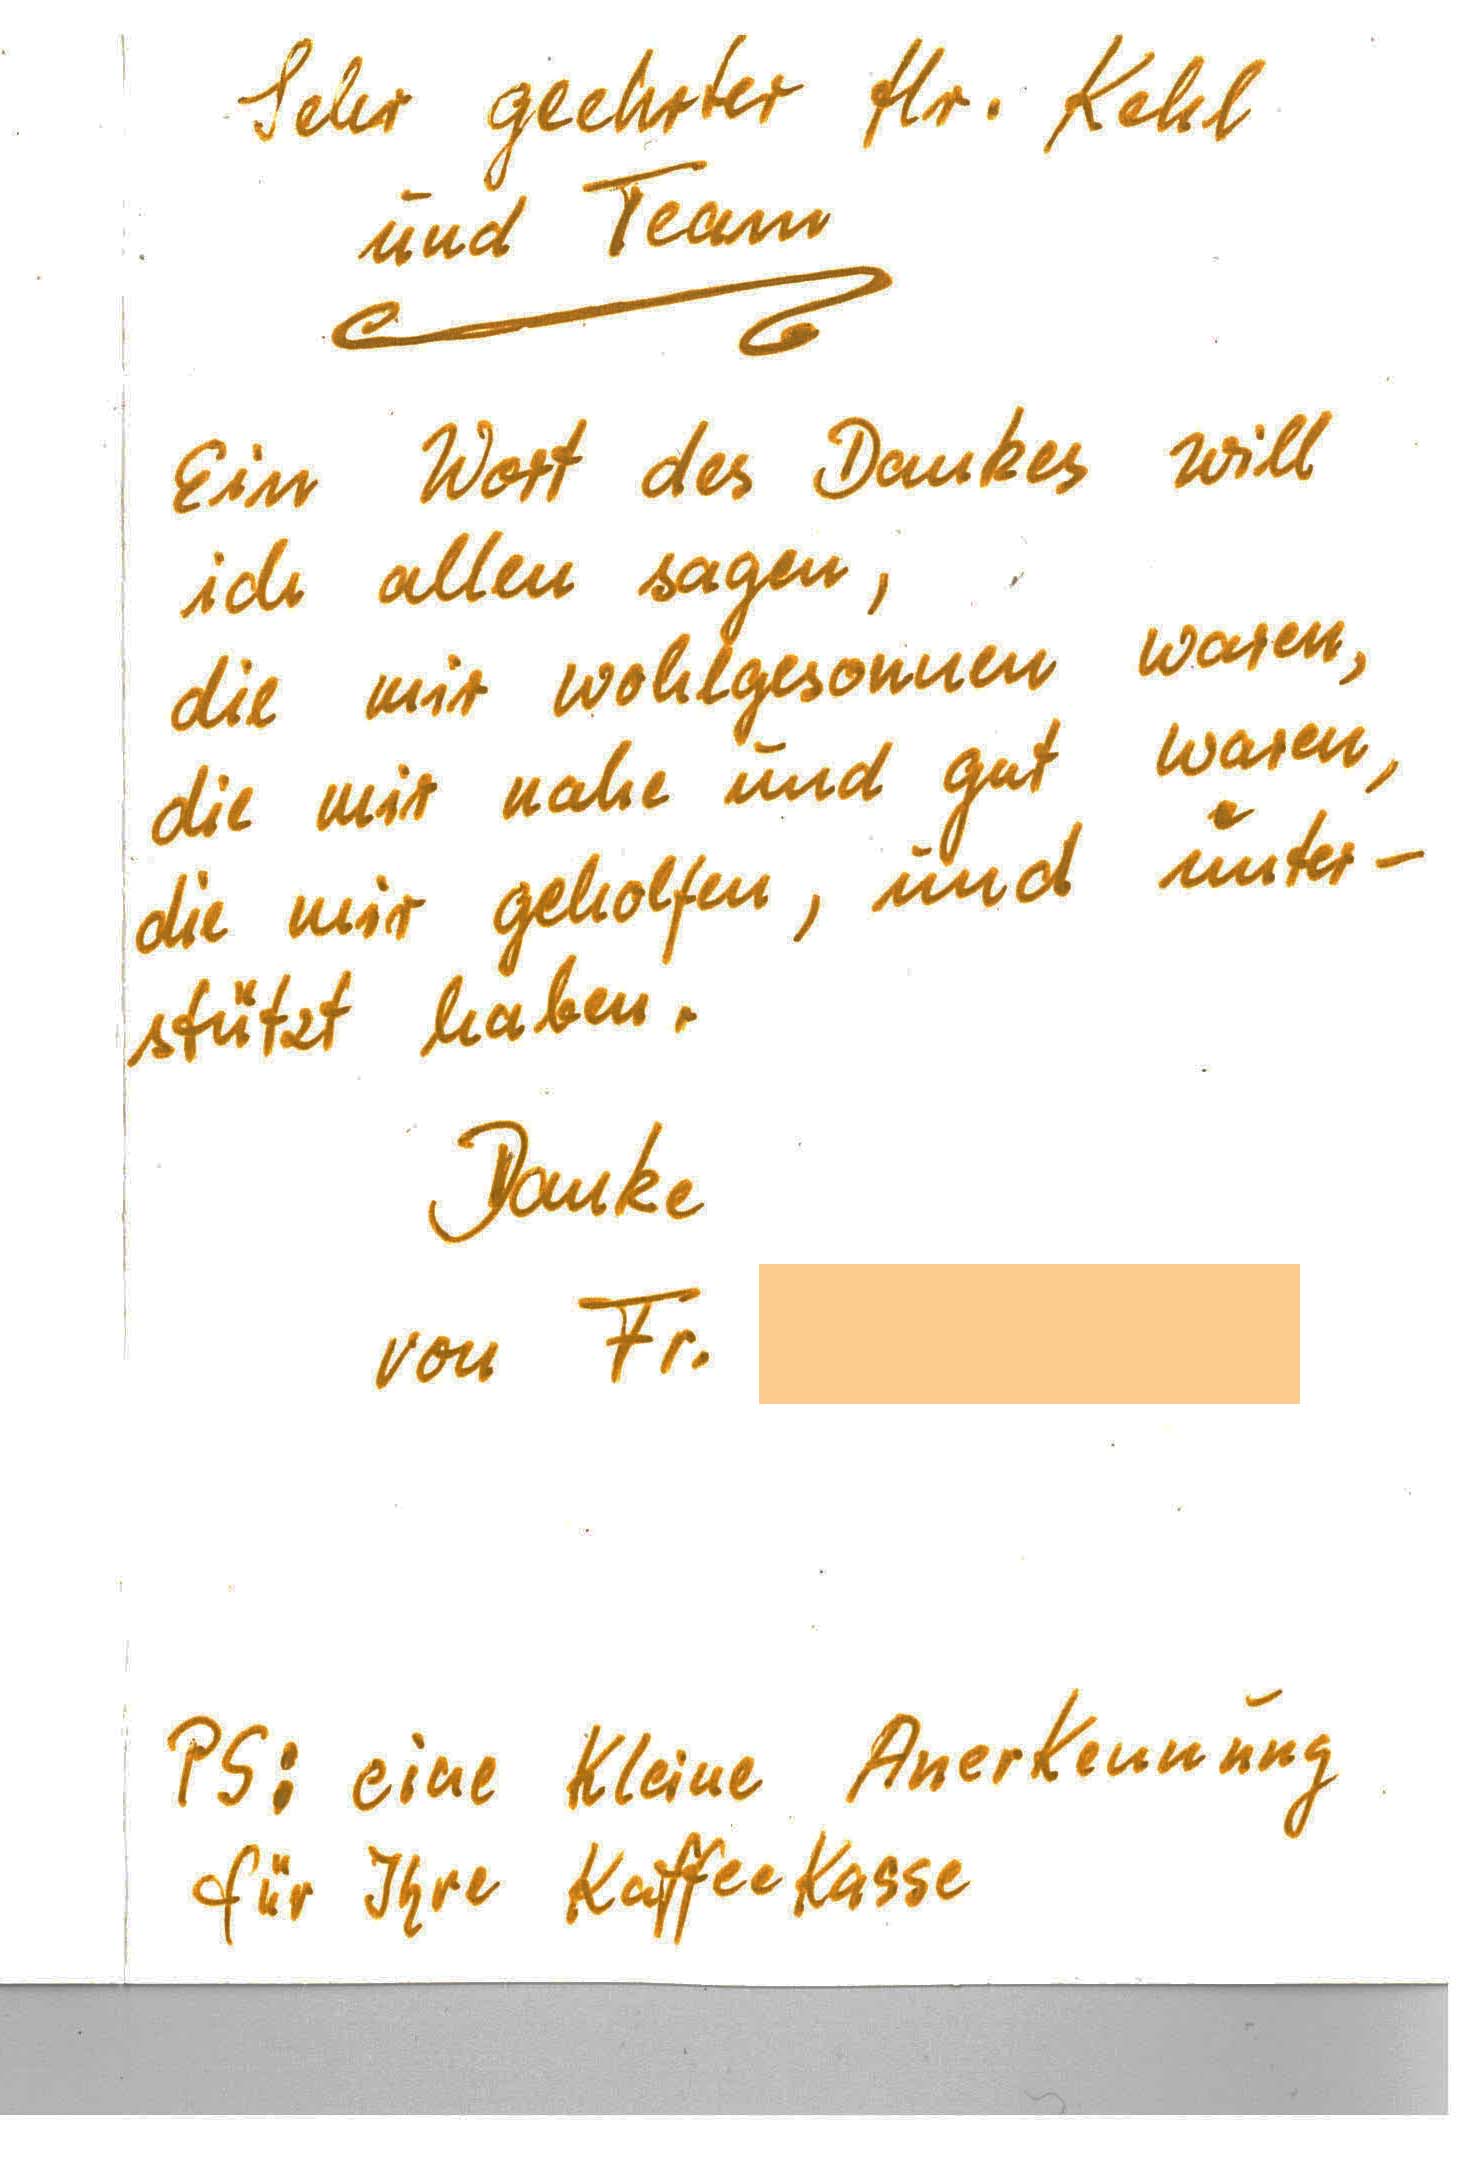 Sehr geehrter Hr. Kehl
und Team
Ein Wort des Dankes will
ich allen sagen,
die mir wohlgesonnen waren,
die mir nahe und gut waren,
die mir geholfen, und unter-
stützt haben.
Danke
von Fr.
PS: eine Kleine Anerkennung
für Ihre KaffeeKasse